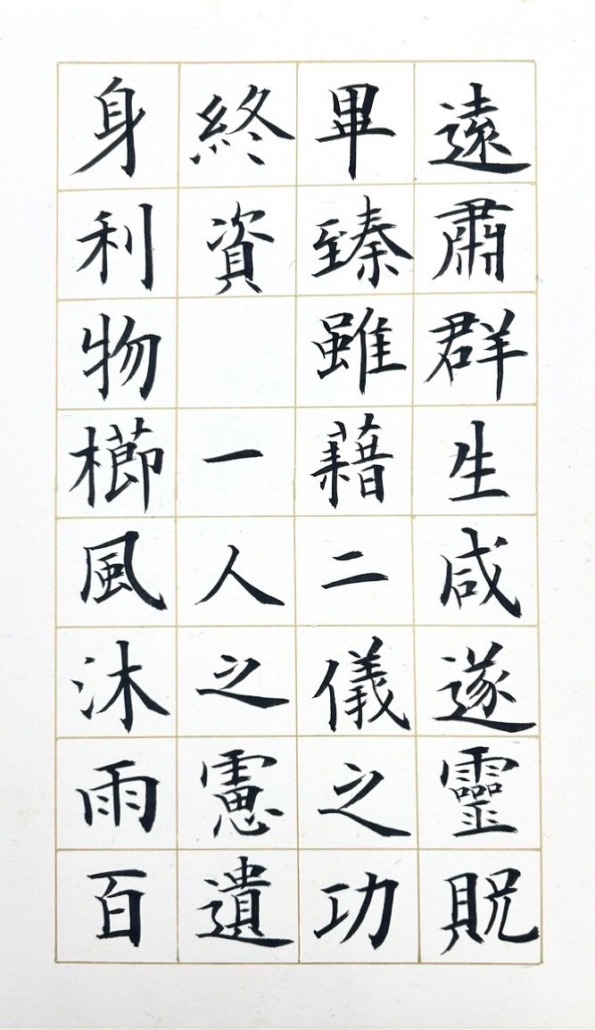 遠肅群生咸遂靈貺
畢臻雖藉二儀之功
終資 一人之慮遺
身利物櫛風沐雨百